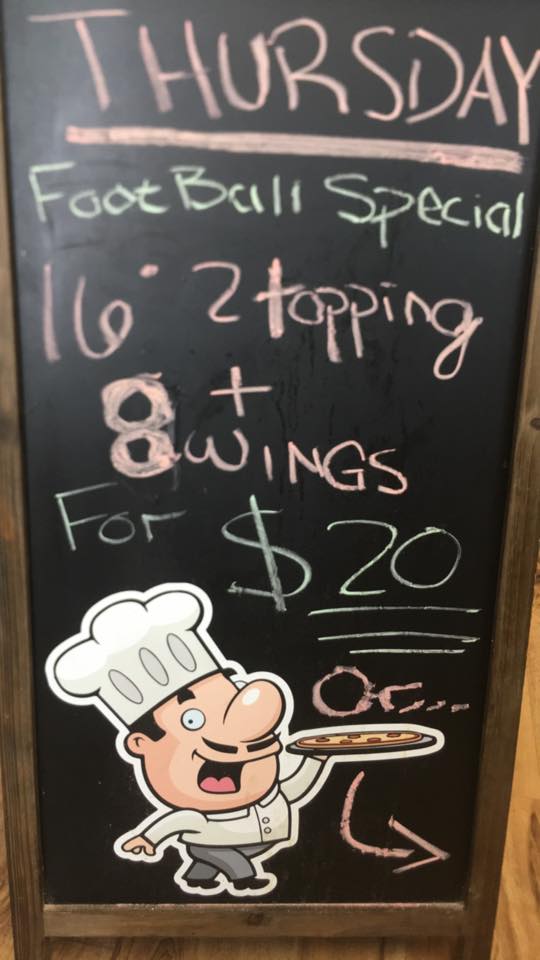 THURSDAY
FootBall Special
16" 2 topping
+
8 WINGS
For $20
Or...